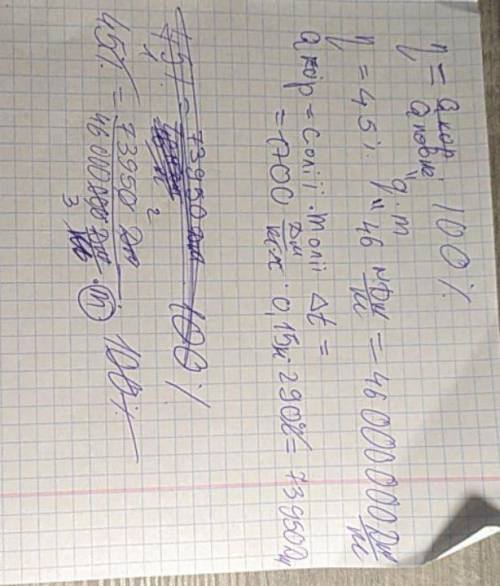 η = Qкор / Qповн · 100%
q · m
η = 45% q = 46 МДж/кг = 46 000 000 Дж/кг
Qкор = Cолії · mолії Δt =
= 1700 Дж/кг·К · 0,15кг · 290К = 73950 Дж
45% = 73950 Дж · 100%
45% = 73950 Дж / 46 000 000 Дж/кг · m · 100%